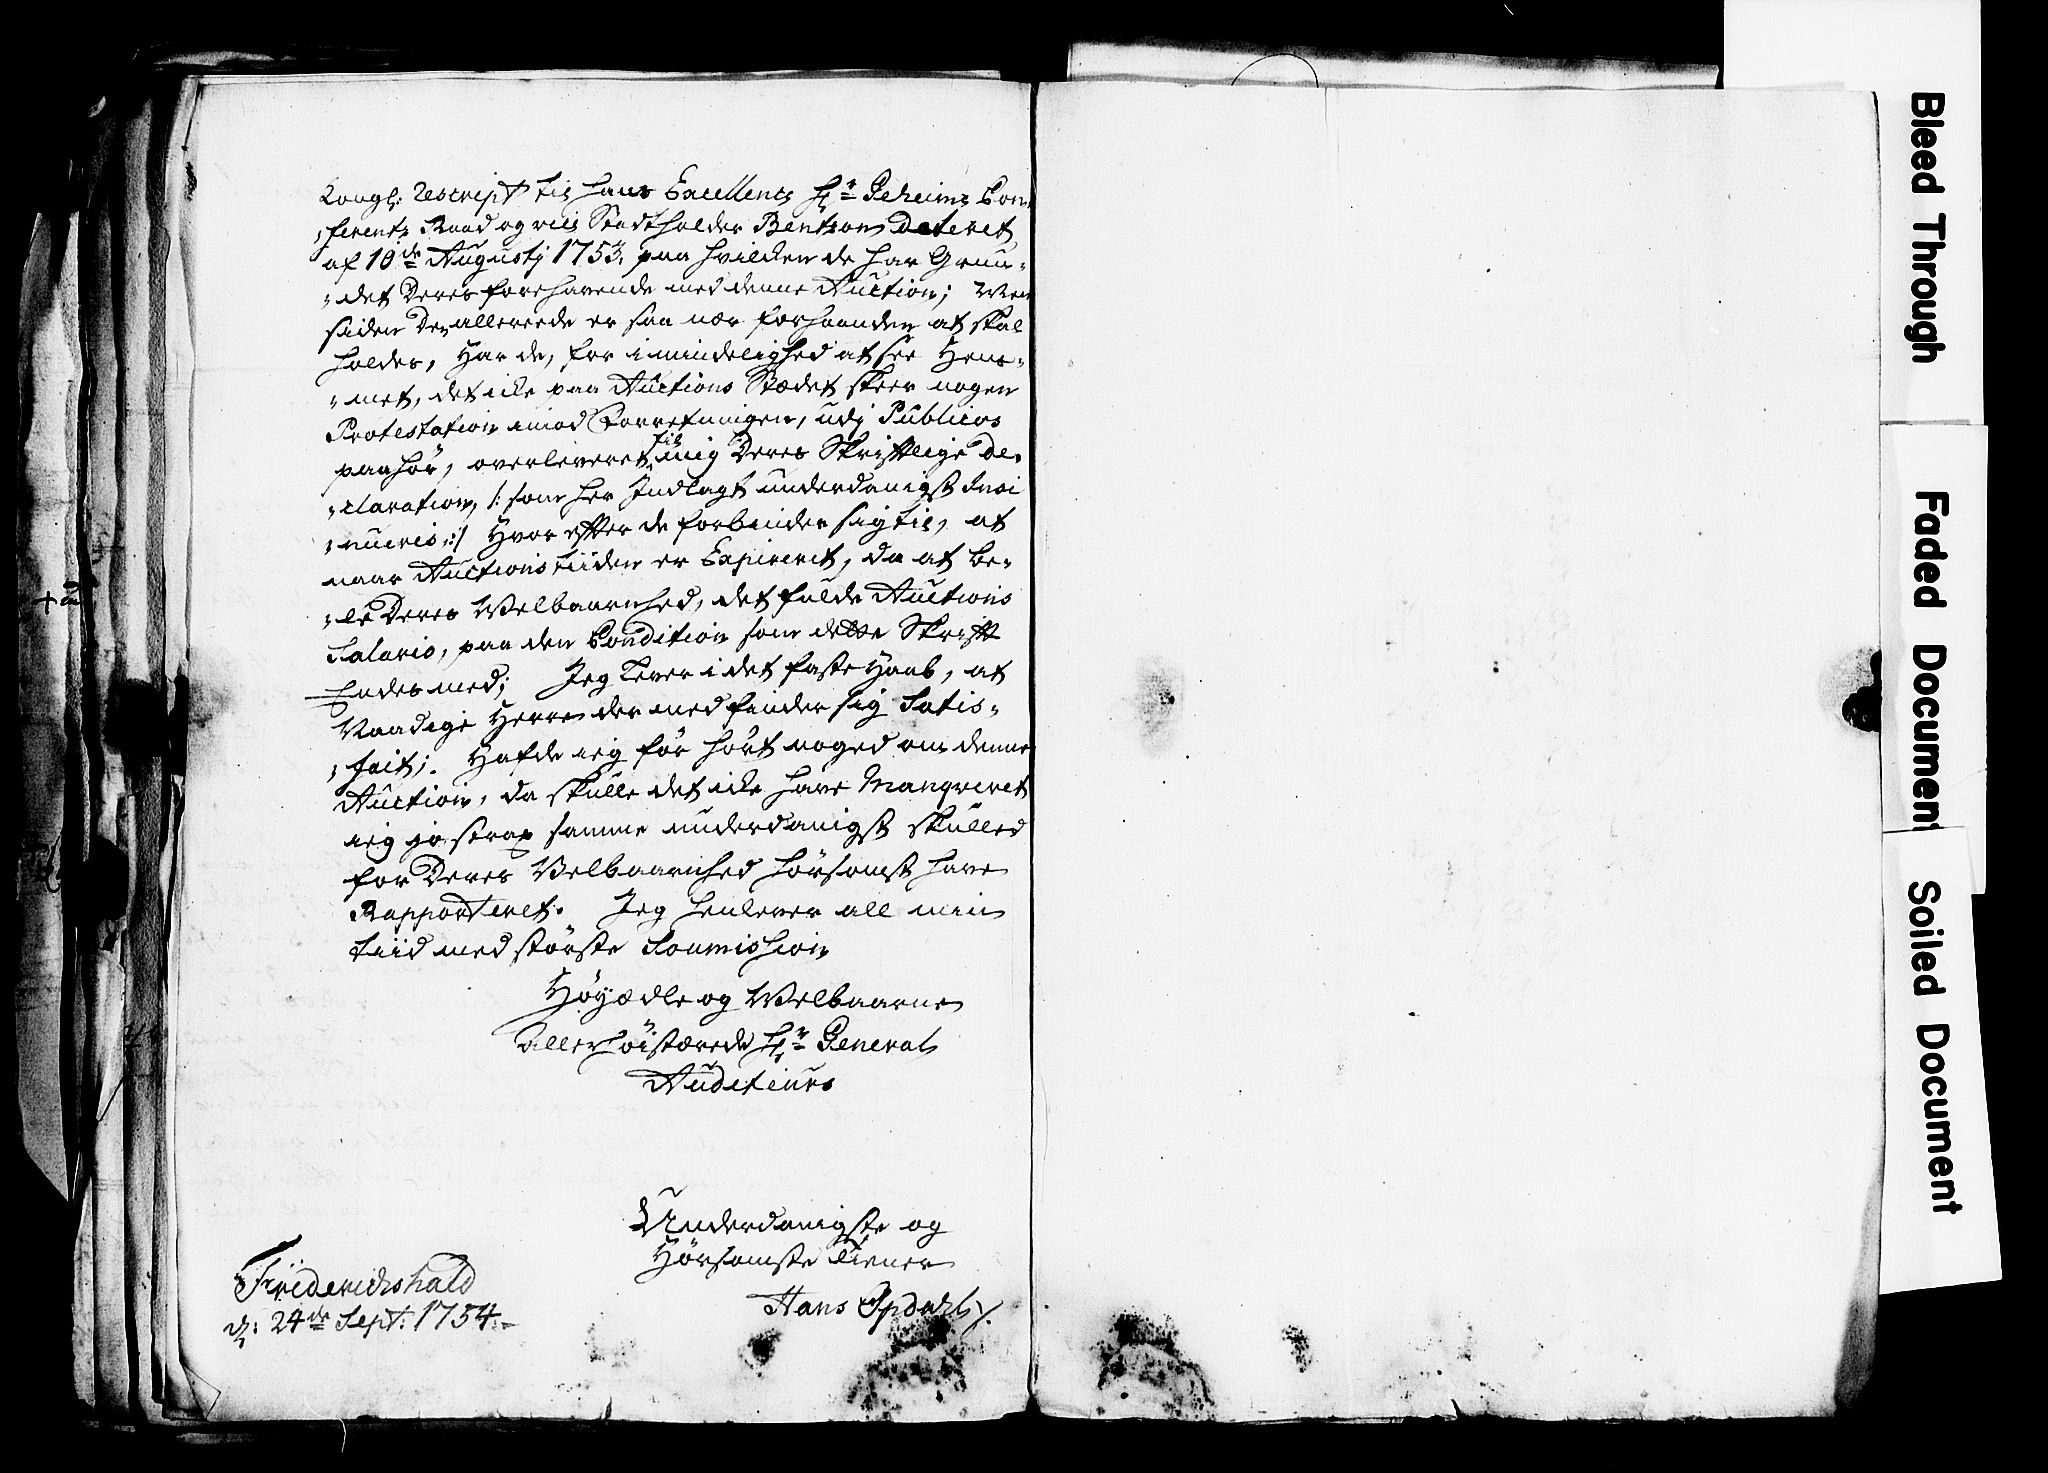 Kongl: Rescript til hans Excellence Hr Geheime Con-
ferentz Raad og vice Stadtholder Bentzon dateret
af 10de Augustj 1753. paa hvilken de har Grun-
-det Deres forehavende med denne Auction; Men
siden Den allereede er saa nær forhaanden at skal
holdes, Har de, for i mindelighed at see Hem-
-met, det icke paa Auctions Stædet skeer nogen
Protestation imod Forretningen, udj Publicos
paahør, overleveret til mig Deres Skriftlige De-
-claration, /: som her Indlagt underdanigst Insi
-nueris :/ Hvor efter de forbinder sig til, at
naar Auctions tiiden er Expireret, da at be-
-tle Deres Velbaarenhed, det fulde Auctions
Salario, paa den Condition som dette Skrift
Endes med; Jeg lever i det faste Haab, at
Naadige Herre der med finder sig Satis-
-fait; Hafde ieg før hørt noged om denne
Auction, da skulle det icke have Manqveret
ieg jo strax samme underdanigst skulled
for Deres Velbaarenhed hørsomst have
Rapporteret. Jeg henlever all min
tiid med største Soumishion
Høyædle og Velbaarne
Allerhøistærede Hr General
Auditeurs
Underdanigste og
Hørsomste Tiener
Hans
Friderichshald
d: 24de Sept: 1754.
Bleed Through
Faded Document
Soiled Document